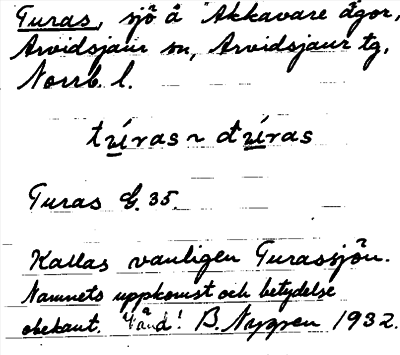 Turas, sjö å Akkavare ägor,
Arvidsjaur sn, Arvidsjaur tg,
Norrb. l.
Turas G. 35.
Kallas vanligen Turassjön.
Namnets uppkomst och betydelse
obekant. Vänd! B. Nygren 1932.